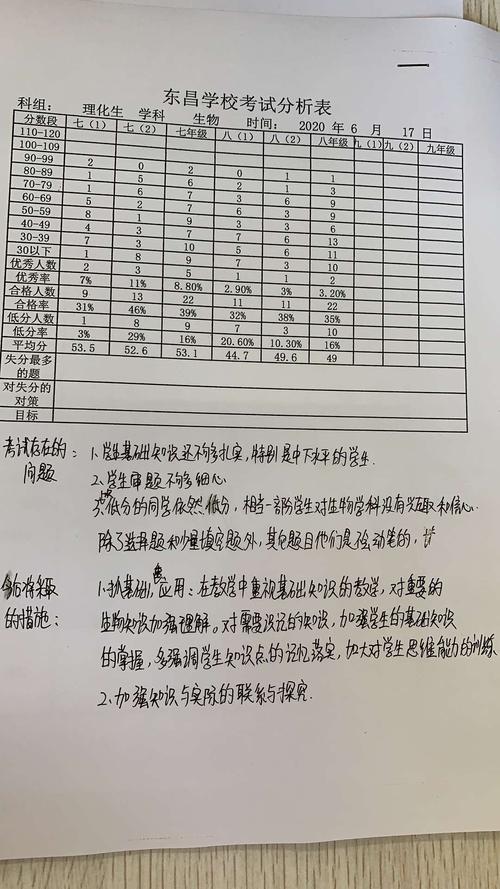 东昌学校考试分析表
科组： 理化生 学科 生物 时间： 2020 年 6 月 17 日
分数段 七（1） 七（2） 七年级 八（1） 八（2） 八年级 九（1） 九（2） 九年级
110-120
100-109
90-99 2 0 2 0 1 1
80-89 1 5 6 2 1 3
70-79 1 6 7 3 6 9
60-69 5 2 7 6 3 9
50-59 8 1 9 3 3 6
40-49 4 3 7 7 6 13
30-39 7 3 10 5 6 11
30以下 1 8 9 7 3 10
优秀人数 2 3 5 1 1 2
优秀率 7% 11% 8.80% 2.90% 3% 3.20%
合格人数 9 13 22 11 11 22
合格率 31% 46% 39% 32% 38% 35%
低分人数 1 8 9 7 3 10
低分率 3% 29% 16% 20.60% 10.30% 16%
平均分 53.5 52.6 53.1 44.7 49.6 49
失分最多的题
对失分的对策
目标
考试存在的问题：
1.学生基础知识还不够扎实，特别是中下水平的学生.
2.学生审题不够细心
3.低分的同学依然低分，相当一部分学生对生物学科没有兴趣和信心.
除了选择题和少量填空题外，其它题目他们是不会动笔的，
今后将采取的措施：
1.抓基础，重应用：在教学中重视基础知识的教学，对重要的
生物知识加强理解。对需要识记的知识，加强学生的基础知识
的掌握，多强调学生知识点的记忆落实，加大对学生思维能力的训练
2.加强知识与实际的联系与探究.